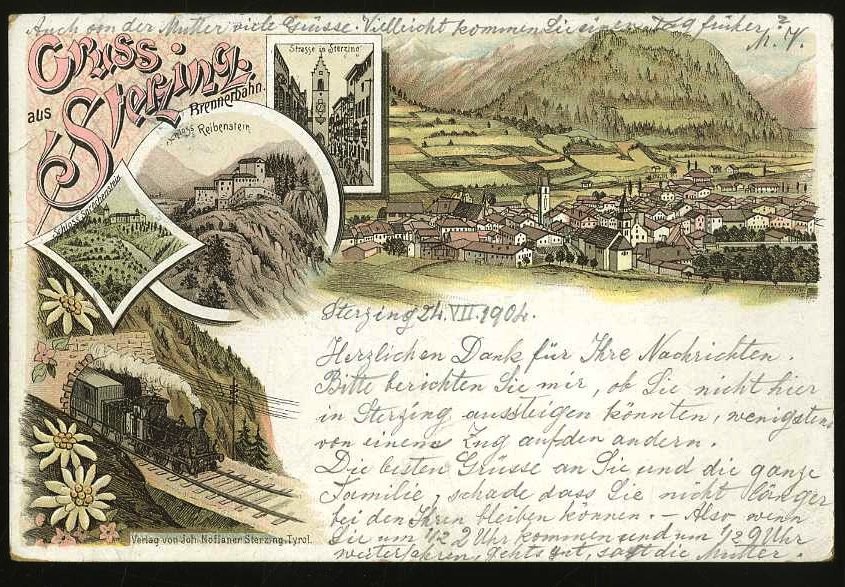 Auch von der Mutter viele Grüsse. Vielleicht kommen Sie einen Tag früher?
Gruss
aus
Sterzing.
Brennerbahn.
Strasse in Sterzing
Schloss Reibenstein
Schloss
Sterzing 24. VII. 1904.
Herzlichen Dank für Ihre Nachrichten.
Bitte berichten Sie mir, ob Sie nicht hier
in Sterzing aussteigen könnten, wenigstens
von einem Zug auf den andern.
Die besten Grüsse an Sie und die ganze
Familie, schade dass Sie nicht länger
bei den Ihren bleiben können. – Also wenn
Sie um 1/2 2 Uhr kommen und um 1/2 9 Uhr
weiterfahren, gehts gut, sagt die Mutter.
Verlag von Joh. Noflaner Sterzing, Tyrol.